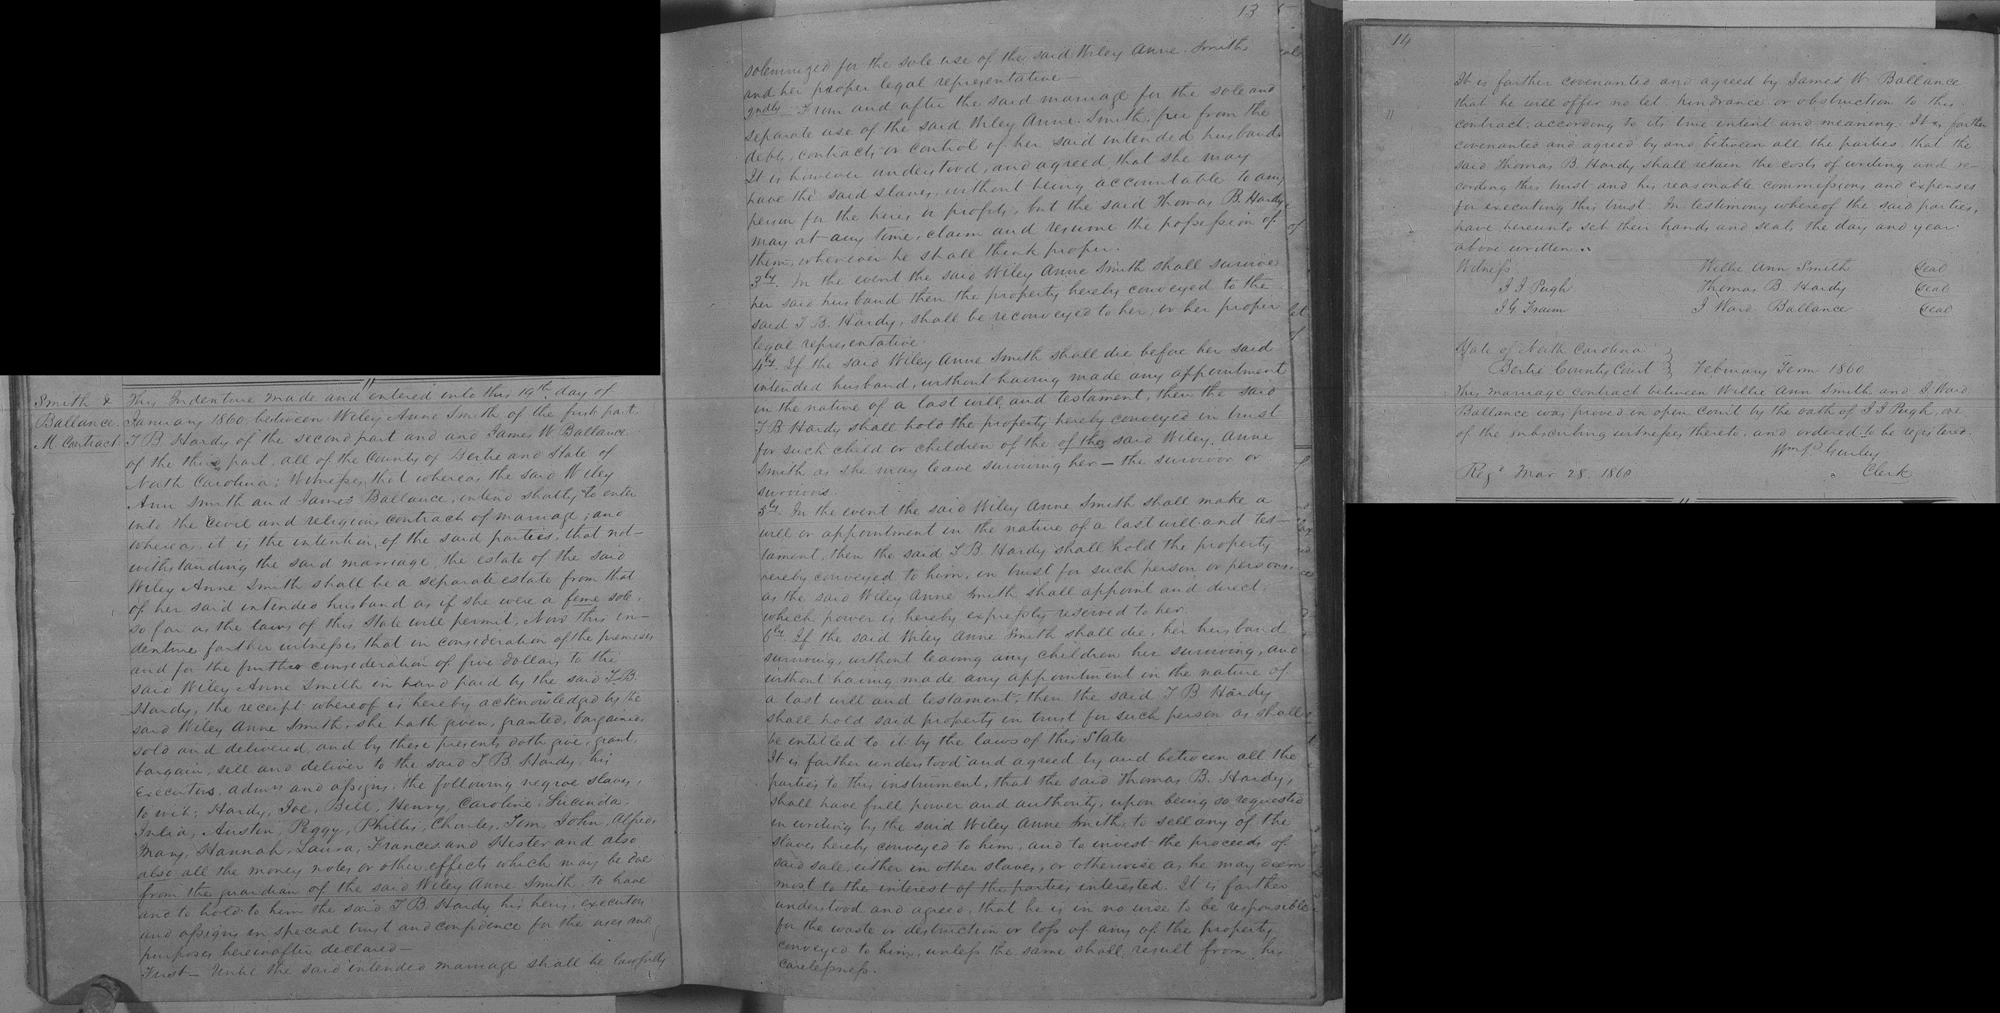 Smith &
Ballance
M Contract
This Indenture made and entered into this 19th day of
January 1860 between Wiley Anne Smith of the first part,
T B Hardy of the second part and and James W Ballance
of the third part, all of the County of Bertie and State of
North Carolina; Witnesses, that whereas the said Wiley
Ann Smith and James Ballance, intend shortly to enter
into the civil and religious contract of marriage, and
whereas, it is the intention, of the said parties, that not-
withstanding the said marriage, the estate of the said
Wiley Anne Smith shall be a separate estate from that
of her said intended husband as if she were a feme sole,
so far as the laws of this State will permit, Now this in-
denture farther witnesses that in consideration of the premises
and for the further consideration of five dollars to the
said Wiley Anne Smith in hand paid by the said T B.
Hardy, the receipt whereof is hereby acknowledged by the
said Wiley Anne Smith, she hath given, granted, bargained
sold and delivered and by these presents doth give, grant
bargain, sell and deliver to the said T B. Hardy, his
Executors, admrs and assigns, the following negroe slaves,
to wit; Hardy, Joe, Bill, Henry, Caroline, Lucinda,
Julia, Austin, Peggy, Phillis, Charles, Tom, John, Alfred
Mary, Hannah, Laura, Frances and Hester and also
also all the money notes or other effects which may be due
from the guardian of the said Wiley Anne Smith to have
and to hold to him the said T B Hardy his heirs, executors
and assigns in special trust and confidence for the uses and
purposes hereinafter declared—
First— Until the said intended marriage shall be lawfully
13
solemnized for the sole use of the said Wiley Anne Smith
and her proper legal representative—
2ndly From and after the said marriage for the sole and
separate use of the said Wiley Anne Smith, free from the
debts, contracts or control of her said intended husband.
It is however understood, and agreed that she may
have the said slaves, without being accountable to any
person for the hires or profits, but the said Thomas B. Hardy
may at any time, claim and resume the possession of
them, whenever he shall think proper.
3ly. In the event the said Wiley Anne Smith shall survive
her said husband then the property hereby conveyed to the
said T B. Hardy, shall be reconveyed to her, or her proper
legal representative.
4ly. If the said Wiley Anne Smith shall die before her said
intended husband, without having made any appointment
in the nature of a last will and testament, then the said
T B Hardy shall hold the property hereby conveyed in trust
for such child or children of the of the said Wiley Anne
Smith as she may leave surviving her— the survivor or
survivors.
5ly. In the event the said Wiley Anne Smith shall make a
will or appointment in the nature of a last will and tes-
tament, then the said T B. Hardy shall hold the property
hereby conveyed to him, in trust for such person or persons,
as the said Wiley Anne Smith shall appoint and direct,
which power is hereby expressly reserved to her.
6ly. If the said Wiley Anne Smith shall die, her husband
surviving, without leaving any children her surviving, and
without having made any appointment in the nature of
a last will and testament, then the said T B. Hardy
shall hold said property in trust for such person as shall
be entitled to it by the laws of this State
It is farther understood and agreed by and between all the
parties to this instrument, that the said Thomas B. Hardy,
shall have full power and authority, upon being so requested
in writing by the said Wiley Anne Smith, to sell any of the
slaves hereby conveyed to him, and to invest the proceeds of
said sale, either in other slaves, or otherwise as he may deem
most to the interest of the parties interested. It is farther
understood and agreed, that he is in no wise to be responsible
for the waste or destruction or loss of any of the property
conveyed to him, unless the same shall result from his
carelessness.
14
It is farther covenanted and agreed by James W Ballance
that he will offer no let, hindrance or obstruction to this
contract, according to its true intent and meaning. It is farther
covenanted and agreed by and between all the parties that the
said Thomas B Hardy shall retain the costs of writing and re-
cording this trust and his reasonable commissions and expenses
for executing this trust. In testimony whereof the said parties,
have hereunto set their hands and seals the day and year
above written.
Witness
Willie Ann Smith (seal
J J Pugh Thomas B Hardy (seal
J G Fraim J Ward Ballance (seal
State of North Carolina }
Bertie County Court } February Term 1860
This marriage contract between Willie Ann Smith and J Ward
Ballance was proved in open Court by the oath of J J Pugh, one
of the subscribing witnesses thereto, and ordered to be registered.
Wm P Gurley
Clerk
Regd Mar 28. 1860